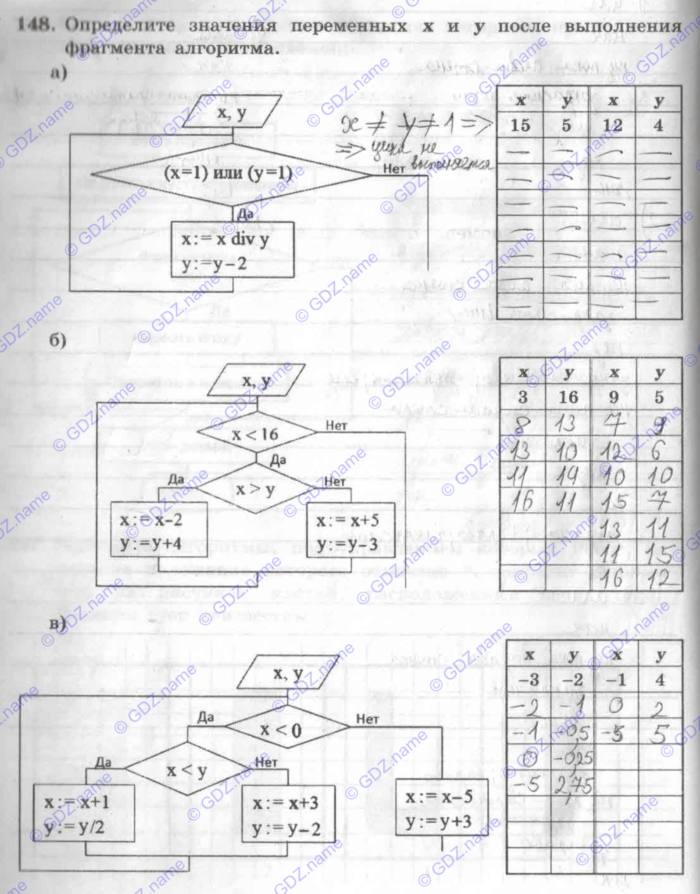 148. Определите значения переменных x и y после выполнения
фрагмента алгоритма.
а)
x, y
(x=1) или (y=1)
Нет
Да
x:= x div y
y:=y-2
x ≠ y ≠ 1 =>
=> цикл не
выполняется
x y x y
15 5 12 4
— — — —
— — — —
— — — —
— — — —
— — — —
— — — —
— — — —
б)
x, y
x < 16
Нет
Да
x > y
Да
Нет
x:= x-2
y:=y+4
x:= x+5
y:=y-3
x y x y
3 16 9 5
8 13 7 9
13 10 12 6
11 14 10 10
16 11 15 7
13 11
11 15
16 12
в)
x, y
x < 0
Да
Нет
x < y
Да
Нет
x:= x+1
y:= y/2
x:= x+3
y:= y-2
x:= x-5
y:= y+3
x y x y
-3 -2 -1 4
-2 -1 0 2
-1 -0,5 -5 5
0 -0,25
-5 2,75
© GDZ.name